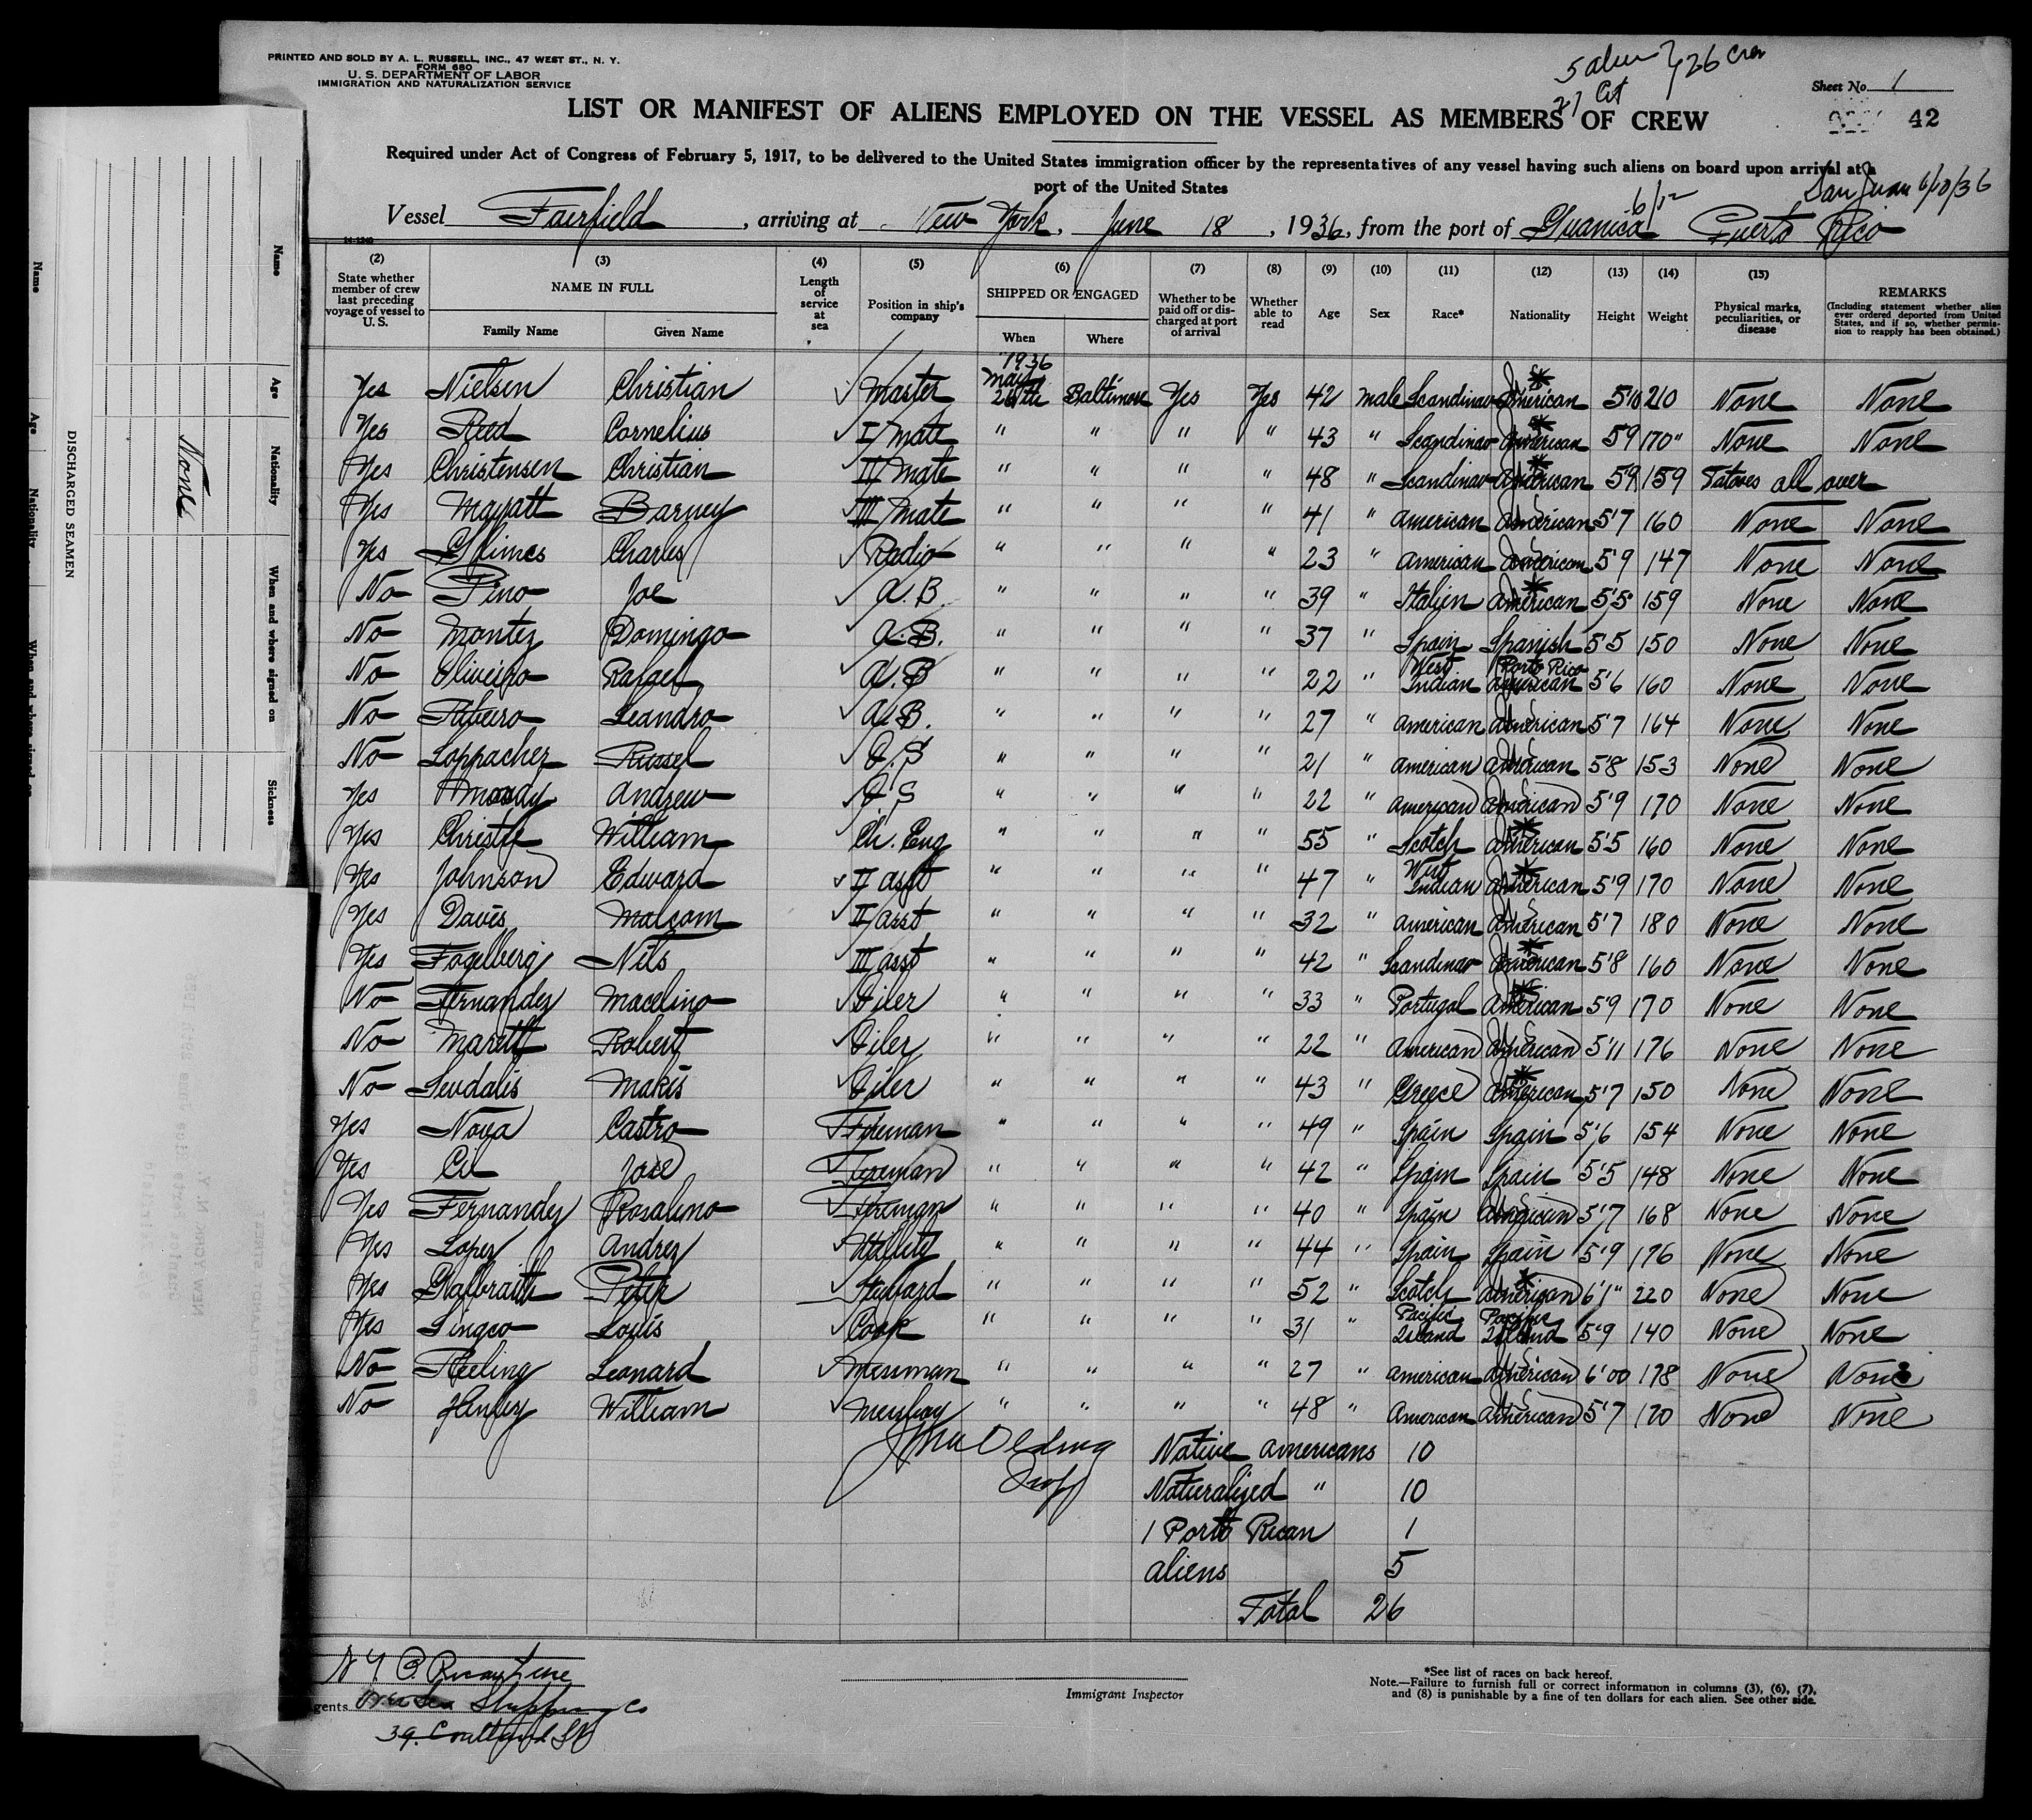 PRINTED AND SOLD BY A. L. RUSSELL, INC., 47 WEST ST., N. Y.
FORM 680
U. S. DEPARTMENT OF LABOR
IMMIGRATION AND NATURALIZATION SERVICE
5 alien 26 crew
21 Cit
Sheet No. 1
42
LIST OR MANIFEST OF ALIENS EMPLOYED ON THE VESSEL AS MEMBERS OF CREW
Required under Act of Congress of February 5, 1917, to be delivered to the United States immigration officer by the representatives of any vessel having such aliens on board upon arrival at a
port of the United States
San Juan 6/10/36
6/12
Vessel Fairfield, arriving at New York, June 18, 1936, from the port of Guanica Puerto Rico
14-1240
(2) (3) (4) (5) (6) (7) (8) (9) (10) (11) (12) (13) (14) (15)
State whether member of crew last preceding voyage of vessel to U. S.
NAME IN FULL
Family Name Given Name
Length of service at sea
Position in ship's company
SHIPPED OR ENGAGED
When Where
Whether to be paid off or discharged at port of arrival
Whether able to read
Age Sex Race* Nationality Height Weight
Physical marks, peculiarities, or disease
REMARKS
(Including statement whether alien ever ordered deported from United States, and if so, whether permission to reapply has been obtained.)
1936
Yes Nielsen Christian Master May 26th Baltimore Yes Yes 42 male Scandinav American 5'10 210 None None
Yes Reed Cornelius I Mate " " " " 43 " Scandinav American 5'9 170" None None
Yes Christensen Christian II Mate " " " " 48 " Scandinav American 5'9 159 Tatoes all over
Yes Mayatt Barney III Mate " " " " 41 " American American 5'7 160 None None
Yes Grimes Charles Radio " " " " 23 " American American 5'9 147 None None
No Pino Joe A.B. " " " " 39 " Italien American 5'5 159 None None
No Montez Domingo A.B. " " " " 37 " Spain Spanish 5'5 150 None None
No Oliveiro Rafael A.B " " " " 22 " West Indian Porto Rico American 5'6 160 None None
No Ribeiro Leandro A.B. " " " " 27 " American American 5'7 164 None None
No Loppacher Russel O.S " " " " 21 " American American 5'8 153 None None
Yes Andrew O.S " " " " 22 " American American 5'9 170 None None
Yes Christie William Ch. Eng " " " " 55 " Scotch American 5'5 160 None None
Yes Johnson Edward I asst " " " " 47 " West Indian American 5'9 170 None None
Yes Davis Malcom II asst " " " " 32 " American American 5'7 180 None None
Yes Fogelberg Nils III asst " " " " 42 " Scandinav American 5'8 160 None None
No Fernandez Macelino Oiler " " " " 33 " Portugal American 5'9 170 None None
No Marett Robert Oiler " " " " 22 " American American 5'11 176 None None
No Levdalis Makis Oiler " " " " 43 " Greece American 5'7 150 None None
Yes Nova Castro Fireman " " " " 49 " Spain Spain 5'6 154 None None
Yes Cil Jose Fireman " " " " 42 " Spain Spain 5'5 148 None None
Yes Fernandez Rosalino Fireman " " " " 40 " Spain American 5'7 168 None None
Yes Lopez Andrez Utility " " " " 44 " Spain Spain 5'9 176 None None
Yes Galbraith Peter Steward " " " " 52 " Scotch American 6'1" 220 None None
Yes Singco Louis Cook " " " " 31 " Pacific Island Pacific Island 5'9 140 None None
No Reeling Leonard Messman " " " " 27 " American American 6'00 178 None None
No Henry William Messboy " " " " 48 " American American 5'7 170 None None
Native Americans 10
Naturalized " 10
1 Porto Rican 1
aliens 5
Total 26
Insp
N Y P. Rican Line
Agents Shipping Co
39. Cortlandt St
Immigrant Inspector
*See list of races on back hereof.
Note.—Failure to furnish full or correct information in columns (3), (6), (7),
and (8) is punishable by a fine of ten dollars for each alien. See other side.
DISCHARGED SEAMEN
Name Age Nationality When and where signed on Sickness
None
Name Age Nationality When and where signed on